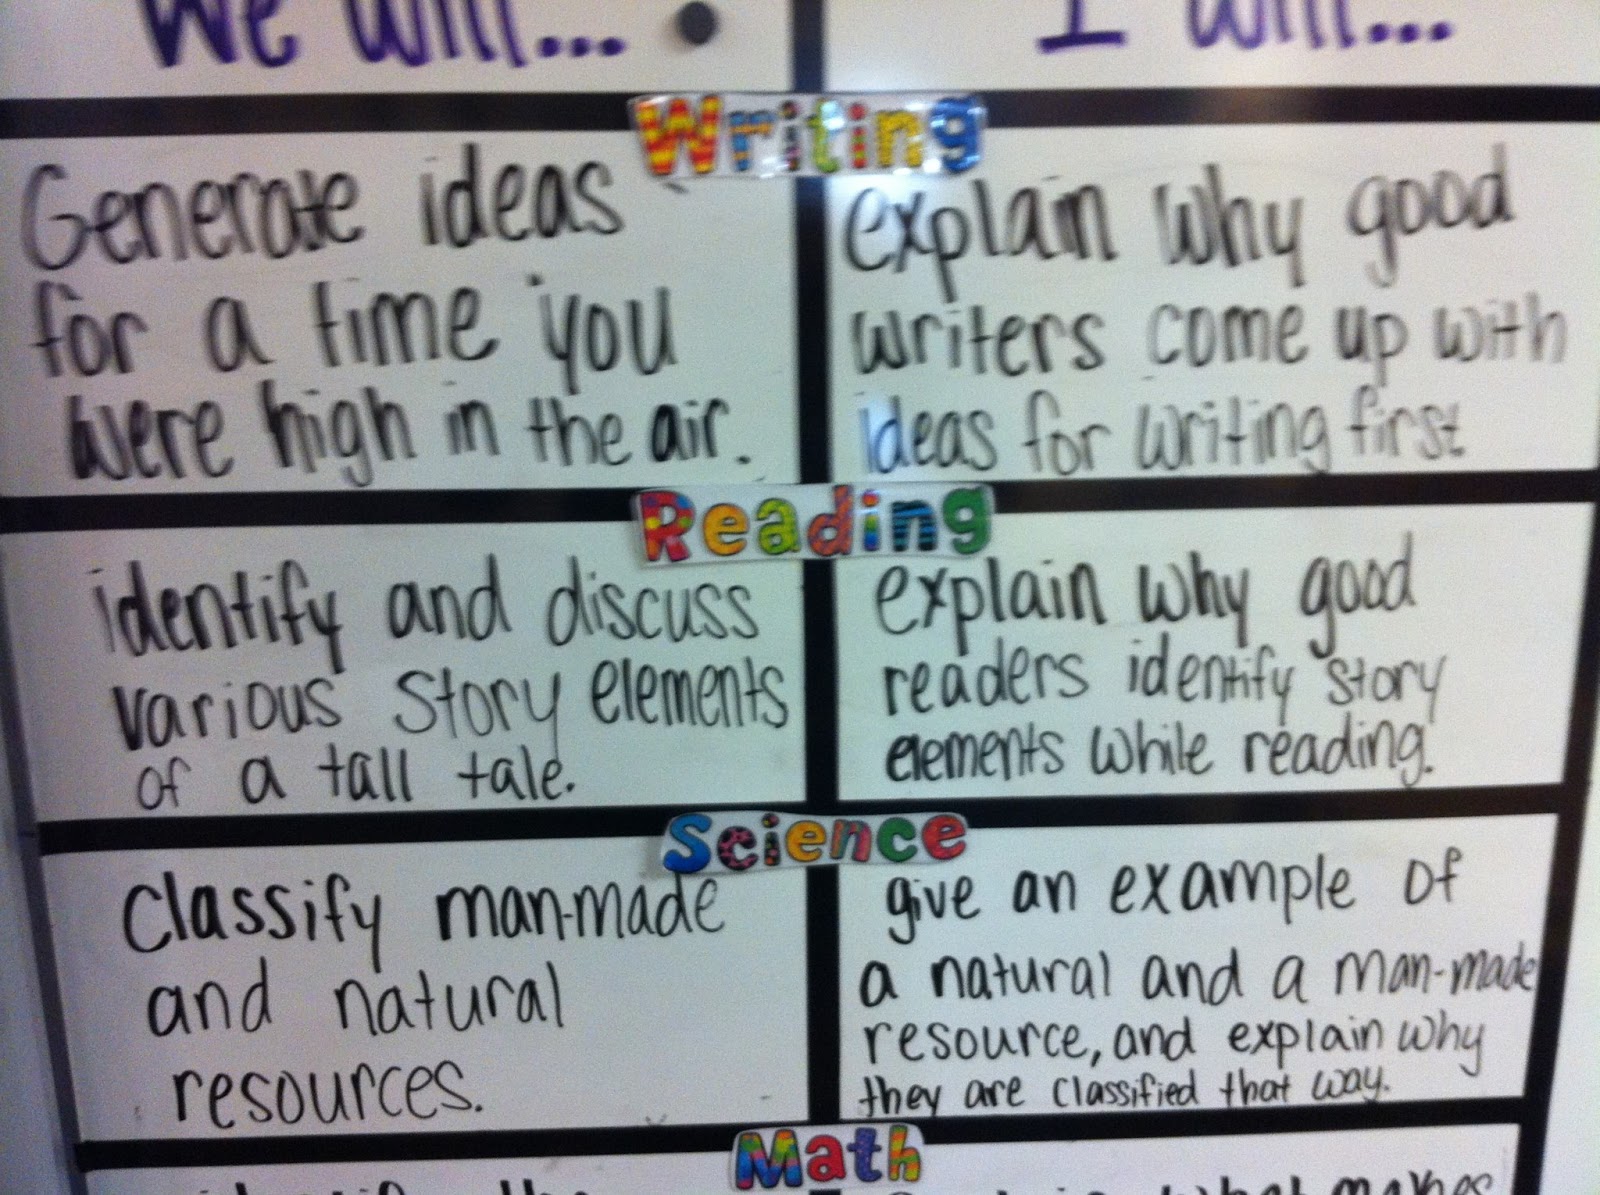 We will...
I will...
Writing
Generate ideas
for a time you
were high in the air.
explain why good
writers come up with
ideas for writing first
Reading
identify and discuss
various story elements
of a tall tale.
explain why good
readers identify story
elements while reading.
Science
Classify man-made
and natural
resources.
give an example of
a natural and a man-made
resource, and explain why
they are classified that way.
Math
what makes